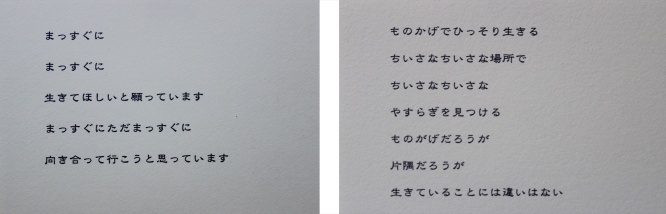 まっすぐに
まっすぐに
生きてほしいと願っています
まっすぐにただまっすぐに
向き合って行こうと思っています
ものかげでひっそり生きる
ちいさなちいさな場所で
ちいさなちいさな
やすらぎを見つける
ものがげだろうが
片隅だろうが
生きていることには違いはない